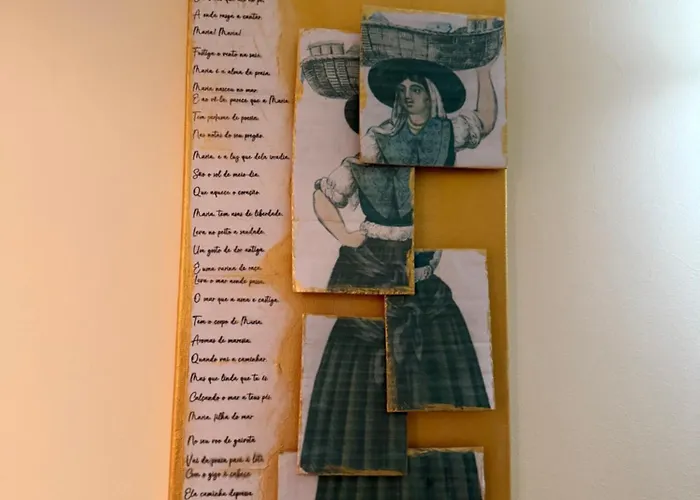 A onda rasga a cantar.
Maria! Maria!
Fustiga o vento na saia.
Maria é a alma da praia.
Maria nasceu no mar
E ao vê-la, parece que a Maria
Tem perfume de poesia.
Nas notas do seu pregão.
Maria, e a luz que dela irradia
São o sol de meio-dia.
Que aquece o coração.
Maria, tem asas de liberdade.
Leva no peito a saudade.
Um gosto de dor antiga.
É uma varina da
Leva o mar aonde passa.
O mar que a ama e castiga.
Tem o corpo de Maria.
Aromas de maresia.
Quando vai a caminhar.
Mas que linda que tu és
Calçando o mar a teus pés.
Maria, filha do mar
No seu voo de gaivota
Vai da praia para a lota
Com o gigo à cabeça
Ela caminha depressa